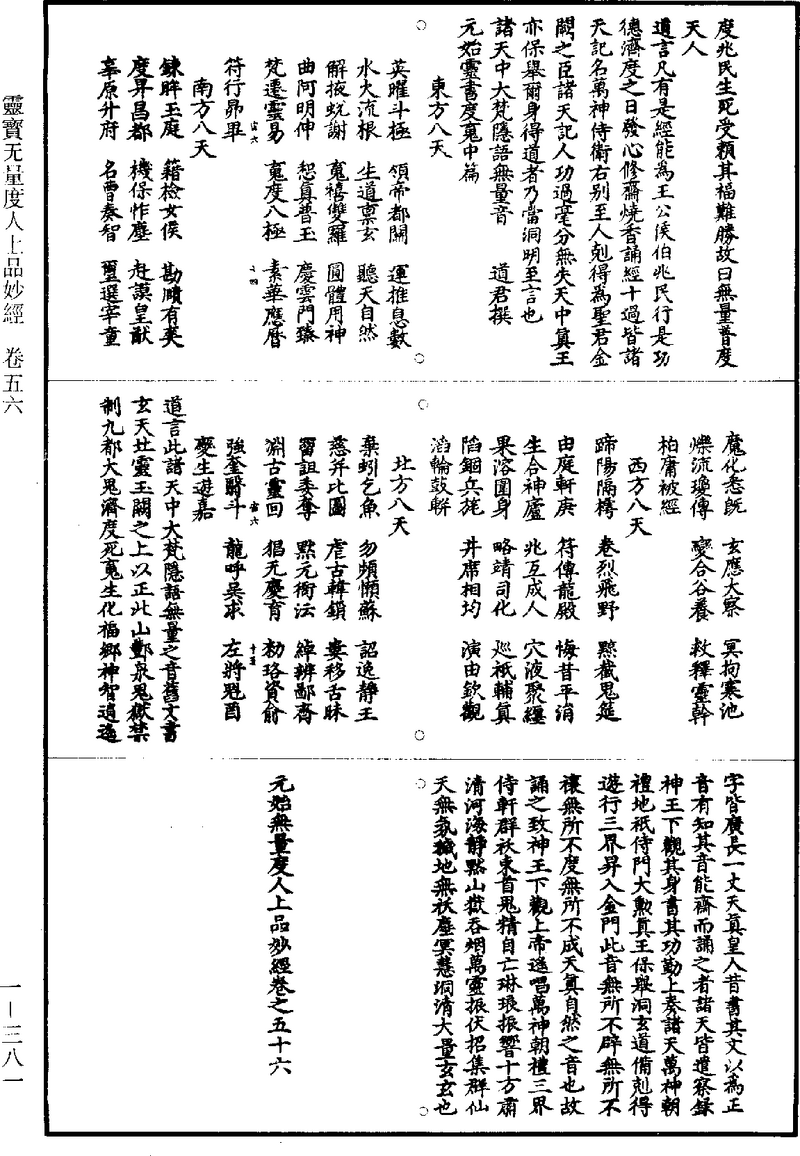 靈寶无量度人上品妙經　卷五六
一—三八一
度兆民生死受賴其福難勝故曰無量普度
天人
道言凡有是經能為王公侯伯兆民行是功
德濟度之日發心修齋燒香誦經十過皆諸
天記名萬神侍衛右别至人剋得為聖君金
闕之臣諸天記人功過毫分無失天中真王
亦保舉爾身得道者乃當洞明至言也
諸天中大梵隱語無量音　道君撰
元始靈書度䰟中篇
東方八天
英曜斗極　領帝都關　運推息數
水火流根　生道稟玄　聽天自然
解掖蛻謝　䰟禧雙羅　圓體用神
曲阿明伸　恕真普王　慶雲門臻
梵遷靈易　䰟度八極　素華應曆
符行昴畢
南方八天
鍊眸玉庭　籍檢女侯　勘順有英
度昇昌都　機保怍塵　赴謨皇猷
辜原升府　名曹奏智　璽選宰童
魔化悉旣　玄應大察　冥拘寒池
爍流瓊傳　變合谷養　救釋靈幹
柏庸被經
西方八天
蹄陽隔樗　卷烈飛野　㸃截鬼筵
由庭軒庚　符傳龍殿　悔昔平消
生合神廬　兆互成人　穴液聚纏
果溶圍身　略靖司化　巡祇輔真
陷錮兵旄　井席相均　演由欽觀
滔輪鼓𨋎
北方八天
棄蚓乞魚　勿頻懶蘇　詔逸靜王
慈并比圖　虐古韓鎖　婁移舌昧
畱詛委奪　㸃元銜沄　綽辨鄙齊
淵古靈回　猖元慶育　劾珞資俞
強奎翳斗　龍呼吴求　左將䰢酉
變生遊嘉
道言此諸天中大梵隱語無量之音舊文書
玄天北靈玉闕之上以正北山酆泉鬼獄禁
制九都大鬼濟度死䰟生化福鄉神智逍遥
字皆廣長一丈天真皇人昔書其文以為正
音有知其音能齋而誦之者諸天皆遣察録
神王下觀其身書其功勤上奏諸天萬神朝
禮地祇侍門大勲真王保舉洞玄道備剋得
遊行三界昇入金門此音無所不辟無所不
禳無所不度無所不成天真自然之音也故
誦之致神王下觀上帝遥唱萬神朝禮三界
侍軒群祅束首鬼精自亡琳琅振響十方肅
清河海靜默山嶽吞烟萬靈振伏招集群仙
天無氛穢地無祅塵冥慧洞清大量玄玄也
元始無量度人上品妙經卷之五十六